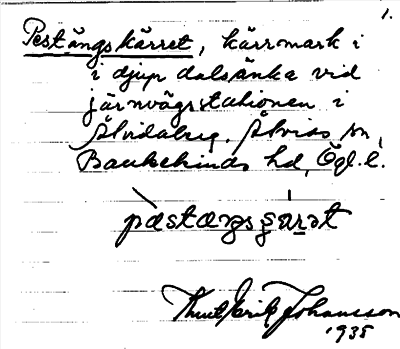 1.
Pestängskärret, kärrmark i
i djup dalsänka vid
järnvägsstationen i
Åtvidaberg. Åtvids sn,
Bankekinds hd, Ögl. l.
pæstæŋsçærət
Knut Erik Johansson
1935